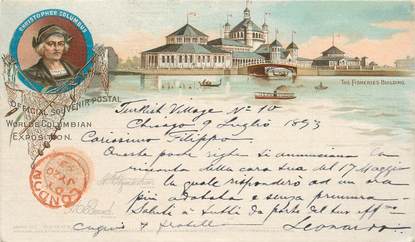 CHRISTOPHER COLUMBUS
OFFICIAL SOUVENIR POSTAL
WORLD'S COLUMBIAN
EXPOSITION.
THE FISHERIES BUILDING.
Turkish Village No 10
Chicago 9 Luglio 1893
Carissimo Filippo
Questa poche righe ti annunciano
della cara tua del 17 Maggio
la quale risponderò ad un ora
più adatata e senza premura
Saluta a tutti da parte del tuo
cugino e fratello
Leonardo
LONDON